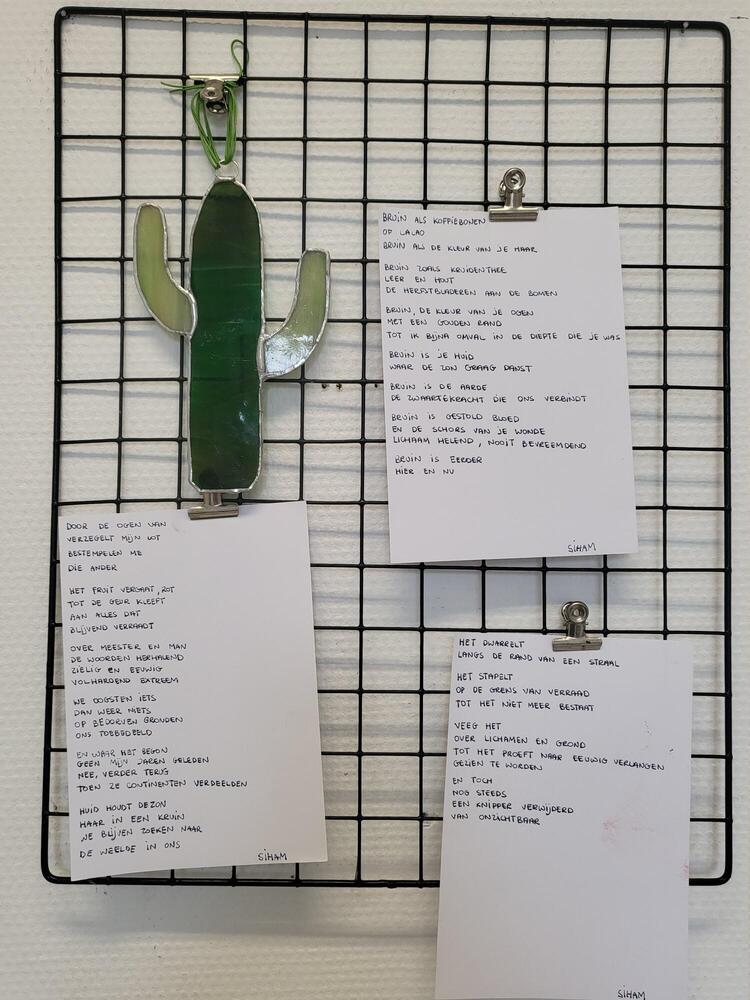 DOOR DE OGEN VAN
VERZEGELT MIJN LOT
BESTEMPELEN ME
DIE ANDER
HET FRUIT VERGAAT, ROT
TOT DE GEUR KLEEFT
AAN ALLES DAT
BLIJVEND VERRAADT
OVER MEESTER EN MAN
DE WOORDEN HERHALEND
ZIELIG EN EEUWIG
VOLHARDEND EXTREEM
WE OOGSTEN IETS
DAN WEER NIETS
OP BEDORVEN GRONDEN
ONS TOEBEDEELD
EN WAAR HET BEGON
GEEN MIJN JAREN GELEDEN
NEE, VERDER TERUG
TOEN ZE CONTINENTEN VERDEELDEN
HUID HOUDT DE ZON
HAAR IN EEN KRUIN
WE BLIJVEN ZOEKEN NAAR
DE WEELDE IN ONS
SIHAM
BRUIN ALS KOFFIEBONEN
OF CACAO
BRUIN ALS DE KLEUR VAN JE HAAR
BRUIN ZOALS KRUIDENTHEE
LEER EN HOUT
DE HERFSTBLADEREN AAN DE BOMEN
BRUIN, DE KLEUR VAN JE OGEN
MET EEN GOUDEN RAND
TOT IK BIJNA OMVAL IN DE DIEPTE DIE JE WAS
BRUIN IS JE HUID
WAAR DE ZON GRAAG DANST
BRUIN IS DE AARDE
DE ZWAARTEKRACHT DIE ONS VERBINDT
BRUIN IS GESTOLD BLOED
EN DE SCHORS VAN JE WONDE
LICHAAM HELEND, NOOIT BEVREEMDEND
BRUIN IS EERDER
HIER EN NU
SIHAM
HET DWARRELT
LANGS DE RAND VAN EEN STRAAL
HET STAPELT
OP DE GRENS VAN VERRAAD
TOT HET NIET MEER BESTAAT
VEEG HET
OVER LICHAMEN EN GROND
TOT HET PROEFT NAAR EEUWIG VERLANGEN
GEZIEN TE WORDEN
EN TOCH
NOG STEEDS
EEN KNIPPER VERWIJDERD
VAN ONZICHTBAAR
SIHAM